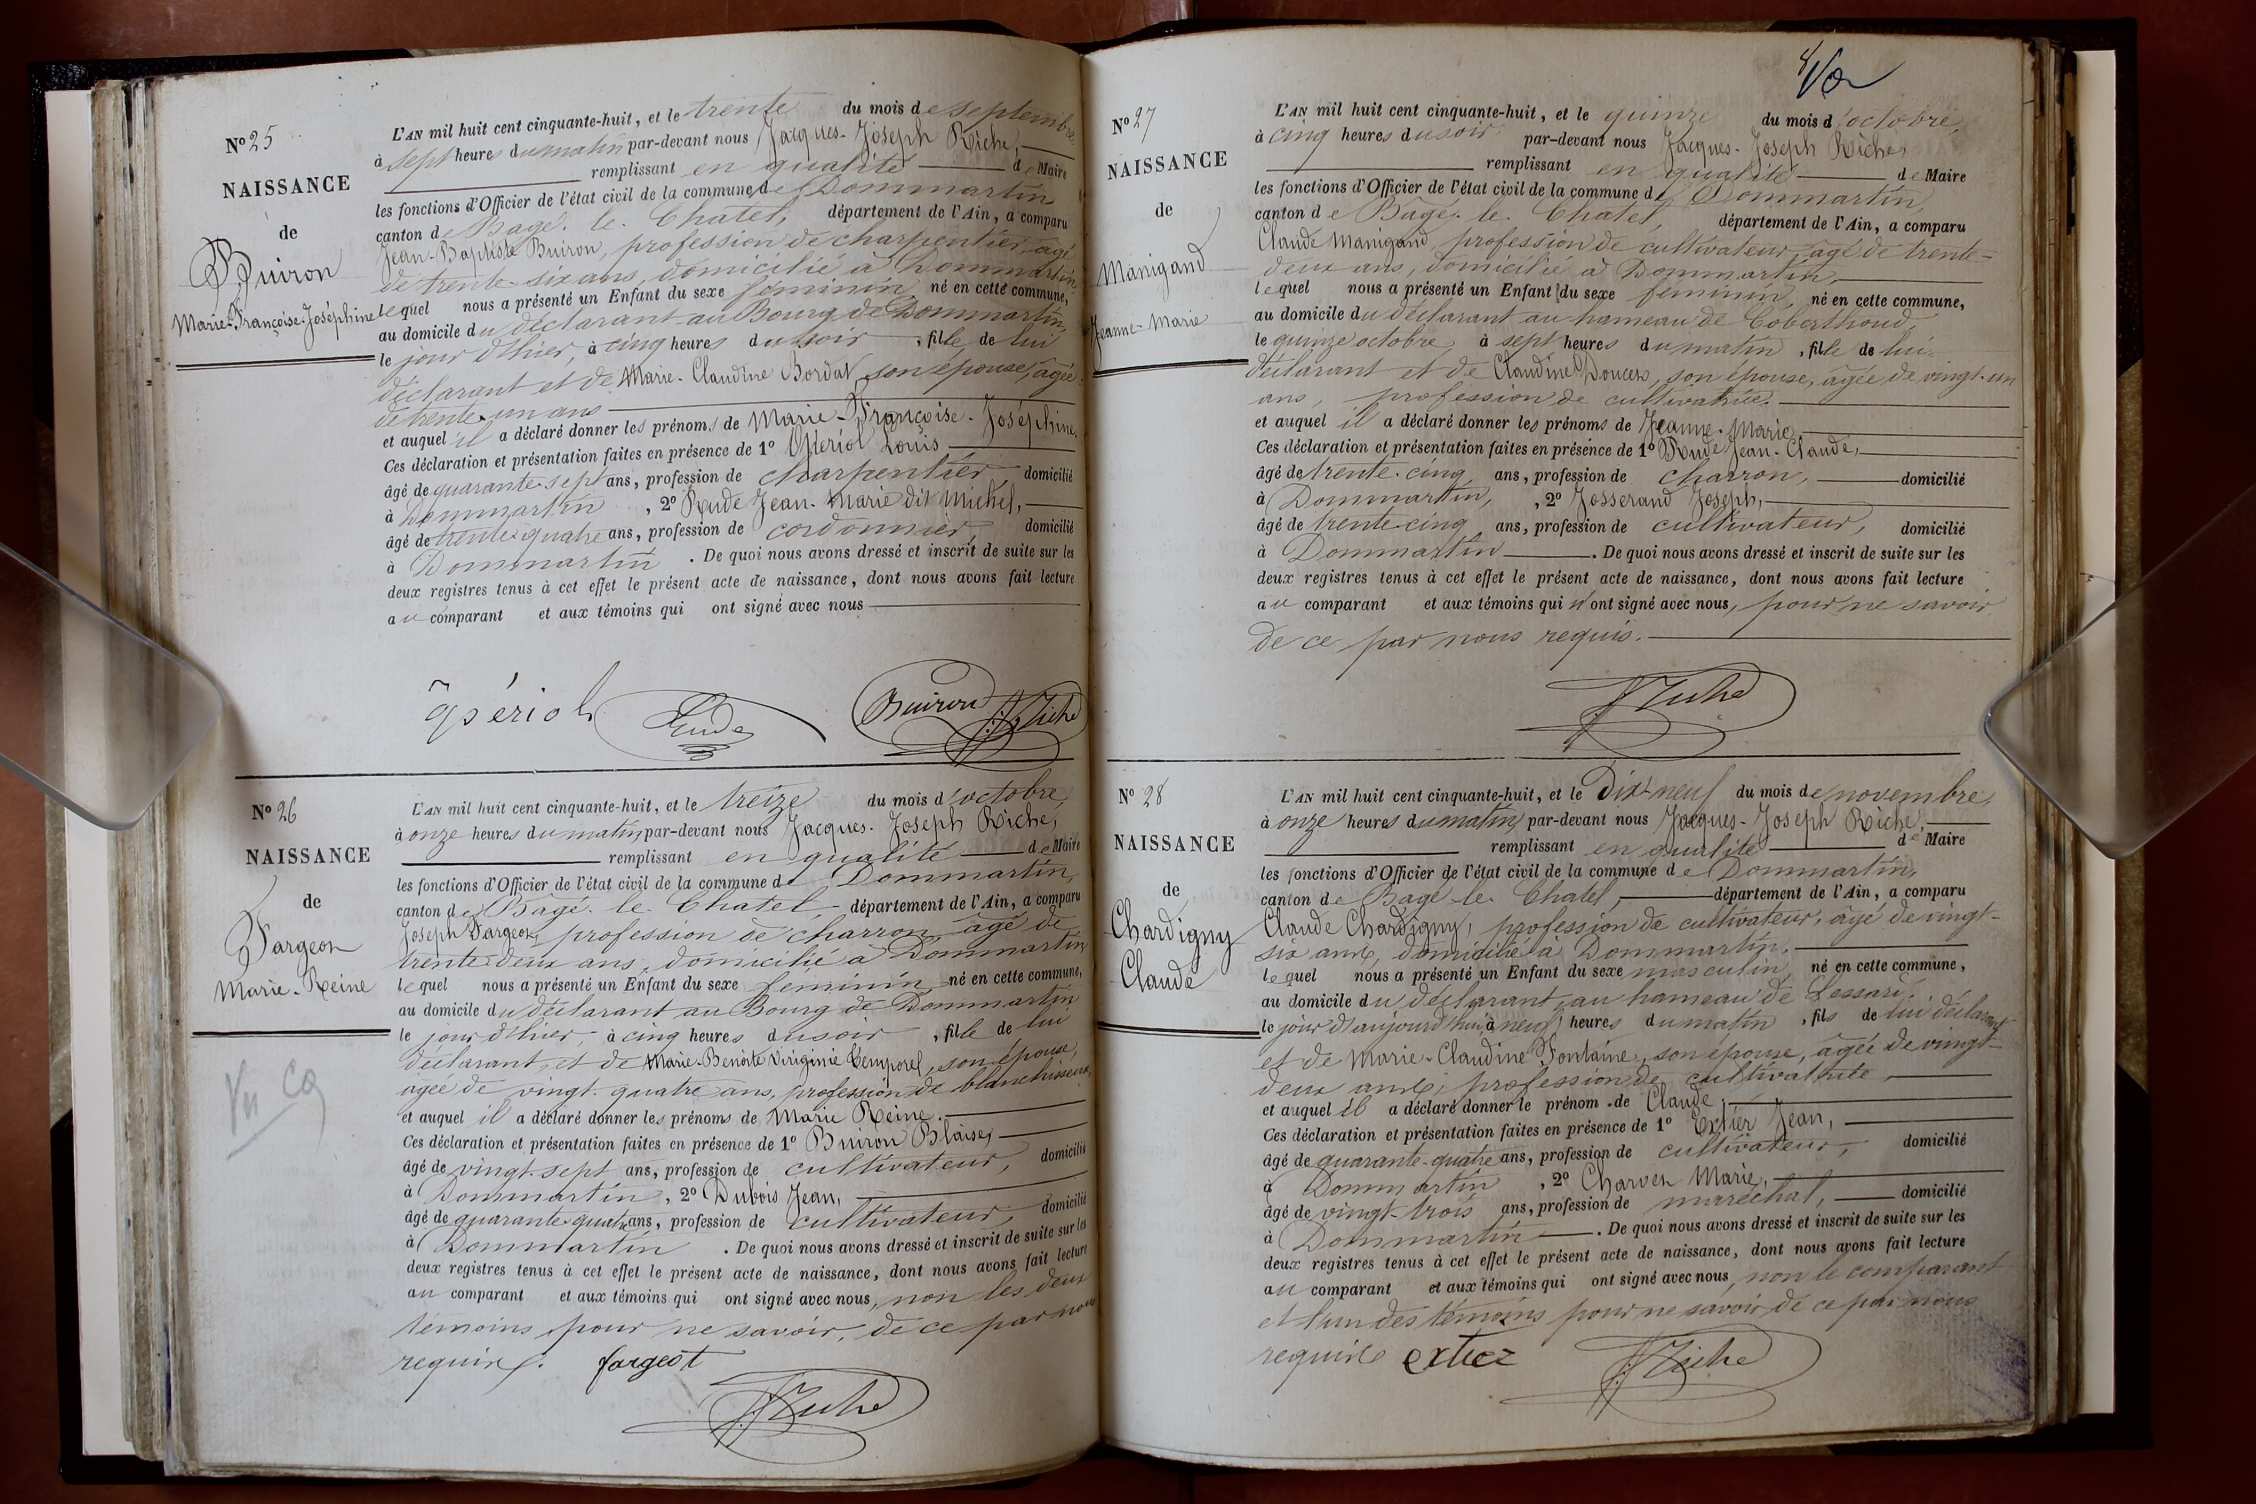 N° 25
NAISSANCE
de
Buiron
Marie-Françoise-Joséphine
L'AN mil huit cent cinquante-huit, et le trente du mois de septembre
à sept heures du matin par-devant nous Jacques-Joseph Riche,
remplissant en qualité de Maire
les fonctions d'Officier de l'état civil de la commune de Dommartin
canton de Bagé-le-Chatel, département de l'Ain, a comparu
Jean-Baptiste Buiron, profession de charpentier, âgé
de trente-six ans, domicilié à Dommartin,
lequel nous a présenté un Enfant du sexe féminin, né en cette commune,
au domicile du déclarant au Bourg de Dommartin,
le jour d'hier, à cinq heures du soir, fille de lui
déclarant et de Marie-Claudine Bordat, son épouse, âgée
de trente-un ans
et auquel il a déclaré donner les prénoms de Marie-Françoise-Joséphine,
Ces déclaration et présentation faites en présence de 1° Louis
âgé de quarante-sept ans, profession de charpentier, domicilié
à Dommartin, 2° Rude Jean-Marie dit Michel,
âgé de trente-quatre ans, profession de cordonnier, domicilié
à Dommartin. De quoi nous avons dressé et inscrit de suite sur les
deux registres tenus à cet effet le présent acte de naissance, dont nous avons fait lecture
au comparant et aux témoins qui ont signé avec nous
Rude Buiron J.J. Riche
N° 26
NAISSANCE
de
Fargeon
Marie-Reine
Vu
L'AN mil huit cent cinquante-huit, et le treize du mois d'octobre,
à onze heures du matin, par-devant nous Jacques-Joseph Riche,
remplissant en qualité de Maire
les fonctions d'Officier de l'état civil de la commune de Dommartin,
canton de Bagé-le-Chatel, département de l'Ain, a comparu
Joseph Fargeon, profession de charron, âgé de
trente-deux ans, domicilié à Dommartin
lequel nous a présenté un Enfant du sexe féminin, né en cette commune,
au domicile du déclarant au Bourg de Dommartin
le jour d'hier, à cinq heures du soir, fille de lui
déclarant, et de Marie-Benoite Virginie Temporel, son épouse,
âgée de vingt-quatre ans, profession de blanchisseuse,
et auquel il a déclaré donner les prénoms de Marie Reine.
Ces déclaration et présentation faites en présence de 1° Buiron Blaise,
âgé de vingt-sept ans, profession de cultivateur, domicilié
à Dommartin, 2° Dubois Jean,
âgé de quarante-quatre ans, profession de cultivateur, domicilié
à Dommartin. De quoi nous avons dressé et inscrit de suite sur les
deux registres tenus à cet effet le présent acte de naissance, dont nous avons fait lecture
au comparant et aux témoins qui ont signé avec nous, non les deux
témoins pour ne savoir, de ce par nous
requis. fargeot
J.J. Riche
N° 27
NAISSANCE
de
Manigand
Jeanne-Marie
L'AN mil huit cent cinquante-huit, et le quinze du mois d'octobre,
à cinq heures du soir par-devant nous Jacques-Joseph Riche,
remplissant en qualité de Maire
les fonctions d'Officier de l'état civil de la commune de Dommartin,
canton de Bagé-le-Chatel, département de l'Ain, a comparu
Claude Manigand, profession de cultivateur, âgé de trente-
deux ans, domicilié à Dommartin,
lequel nous a présenté un Enfant du sexe féminin, né en cette commune,
au domicile du déclarant au hameau de Coberthoud,
le quinze octobre, à sept heures du matin, fille de lui
déclarant et de Claudine, son épouse, âgée de vingt-un
ans, profession de cultivatrice.
et auquel il a déclaré donner les prénoms de Jeanne-Marie
Ces déclaration et présentation faites en présence de 1° Rude Jean-Claude,
âgé de trente-cinq ans, profession de charron, domicilié
à Dommartin, 2° Josserand Joseph,
âgé de trente-cinq ans, profession de cultivateur, domicilié
à Dommartin. De quoi nous avons dressé et inscrit de suite sur les
deux registres tenus à cet effet le présent acte de naissance, dont nous avons fait lecture
au comparant et aux témoins qui n'ont signé avec nous, pour ne savoir
de ce par nous requis.
J.J. Riche
N° 28
NAISSANCE
de
Chardigny
Claude
L'AN mil huit cent cinquante-huit, et le Dix-neuf du mois de novembre,
à onze heures du matin, par-devant nous Jacques-Joseph Riche,
remplissant en qualité de Maire
les fonctions d'Officier de l'état civil de la commune de Dommartin,
canton de Bagé-le-Chatel, département de l'Ain, a comparu
Claude Chardigny, profession de cultivateur, âgé de vingt-
six ans, domicilié à Dommartin.
lequel nous a présenté un Enfant du sexe masculin, né en cette commune,
au domicile du déclarant, au hameau de Lessard.
le jour d'aujourd'hui, à neuf heures du matin, fils de lui déclarant
et de Marie-Claudine Fontaine, son épouse, âgée de vingt-
deux ans, profession de cultivatrice,
et auquel il a déclaré donner le prénom de Claude,
Ces déclaration et présentation faites en présence de 1° Extier Jean,
âgé de quarante-quatre ans, profession de cultivateur, domicilié
à Dommartin, 2° Charvet Marie,
âgé de vingt-trois ans, profession de maréchal, domicilié
à Dommartin. De quoi nous avons dressé et inscrit de suite sur les
deux registres tenus à cet effet le présent acte de naissance, dont nous avons fait lecture
au comparant et aux témoins qui ont signé avec nous, non le comparant
et l'un des témoins pour ne savoir de ce par nous
requis extier J.J. Riche